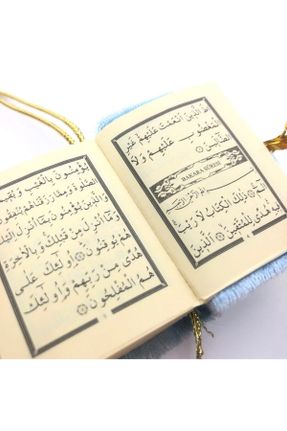 طَ الَّذٖينَ اَنْعَمْتَ عَلَيْهِمْ غَيْرِ
الْمَغْضُوبِ عَلَيْهِمْ وَلَا
الضَّٓالّٖينَ
BAKARA SÛRESİ
بِسْمِ اللّٰهِ الرَّحْمٰنِ الرَّحٖيمِ
الٓمٓ ذٰلِكَ الْكِتَابُ لَا رَيْبَ
فٖيهِ هُدًى لِلْمُتَّقٖينَ اَلَّذٖينَ
يُؤْمِنُونَ بِالْغَيْبِ وَيُقٖيمُونَ
الصَّلٰوةَ وَمِمَّا رَزَقْنَاهُمْ يُنْفِقُونَ
وَالَّذٖينَ يُؤْمِنُونَ بِمَٓا اُنْزِلَ اِلَيْكَ
وَمَٓا اُنْزِلَ مِنْ قَبْلِكَ وَبِالْاٰخِرَةِ
هُمْ يُوقِنُونَ اُو۬لٰٓئِكَ عَلٰى
هُدًى مِنْ رَبِّهِمْ وَاُو۬لٰٓئِكَ
هُمُ الْمُفْلِحُونَ